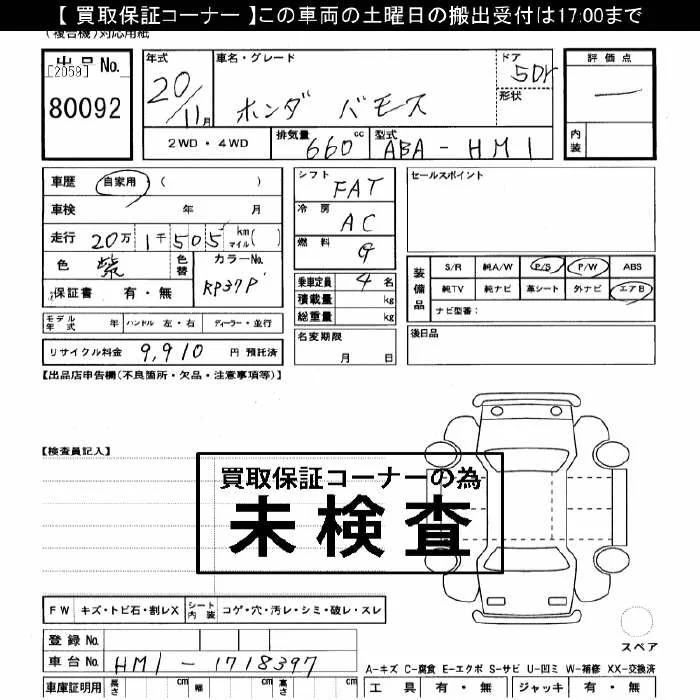 【 買取保証コーナー 】この車両の土曜日の搬出受付は17:00まで
(複合機)対応用紙
出品 No.
[2059]
80092
年式 20/11月
車名・グレード ホンダ バモス
ドア 5Dr
形状
評価点 —
内装
2WD・4WD
排気量 660 cc
型式 ABA-HM1
車歴 自家用・( )
車検 年 月
走行 20万1千505 km マイル( )
色 紫 色替
カラーNo. RP37P
保証書 有・無
モデル年式 年 ハンドル 左・右 ディーラー・並行
リサイクル料金 9,910 円 預託済
シフト FAT
冷房 AC
燃料 G
乗車定員 4名
積載量 kg
総重量 kg
名変期限
月 日
セールスポイント
装備品
S/R 純A/W P/S P/W ABS
純TV 純ナビ 革シート 外ナビ エアB
ナビ型番:
後日品
【出品店申告欄(不良箇所・欠品・注意事項等)】
【検査員記入】
買取保証コーナーの為
未検査
FW キズ・トビ石・割レX シート内装 コゲ・穴・汚レ・シミ・破レ・スレ
登録 No.
車台 No. HM1-1718397
車庫証明用 長さ cm 幅 cm 高さ cm
スペア
A-キズ C-腐食 E-エクボ S-サビ U-凹ミ W-補修 XX-交換済
工具 有・無 ジャッキ 有・無